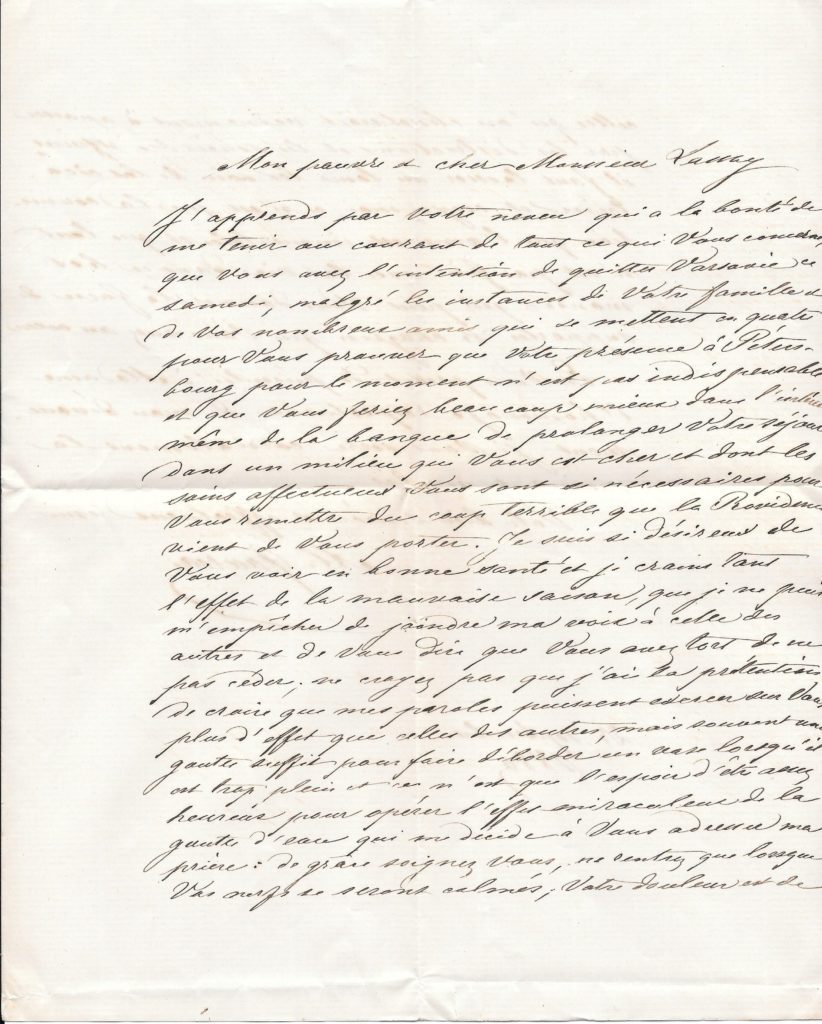 Mon pauvre & cher Monsieur
J'apprends par votre neveu qui a la bonté de
me tenir au courant de tout ce qui Vous concerne,
que vous avez l'intention de quitter Varsovie ce
samedi, malgré les instances de Votre famille &
de Vos nombreux amis qui se mettent en quatre
pour Vous prouver que Votre présence à Péters-
bourg pour le moment n'est pas indispensable
et que Vous feriez beaucoup mieux dans l'intérêt
même de la banque de prolonger Votre séjour
dans un milieu qui Vous est cher et dont les
soins affectueux Vous sont si nécessaires pour
Vous remettre du coup terrible que la Providence
vient de Vous porter. Je suis si désireux de
Vous voir en bonne santé et je crains tant
l'effet de la mauvaise saison, que je ne puis
m'empêcher de joindre ma voix à celle des
autres et de Vous dire que Vous avez tort de ne
pas céder; ne croyez pas que j'ai la prétention
de croire que mes paroles puissent exercer sur Vous
plus d'effet que celles des autres, mais souvent une
goutte suffit pour faire déborder un vase lorsqu'il
est trop plein et ce n'est que l'espoir d'être assez
heureux pour opérer l'effet miraculeux de la
goutte d'eau qui me décide à Vous adresser ma
prière: de grâce soignez Vous, ne rentrez que lorsque
Vos nerfs se seront calmés; Votre douleur est de